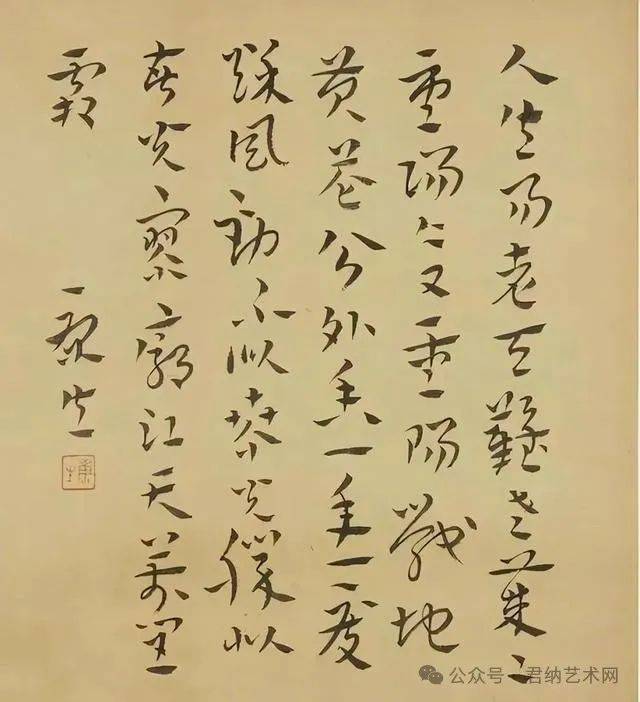 人生易老天難老歲〻
重陽今又重陽戰地
黃花分外香一年一度
秋風勁不似春光勝似
春光寥廓江天萬里
霜
公众号 · 君纳艺术网